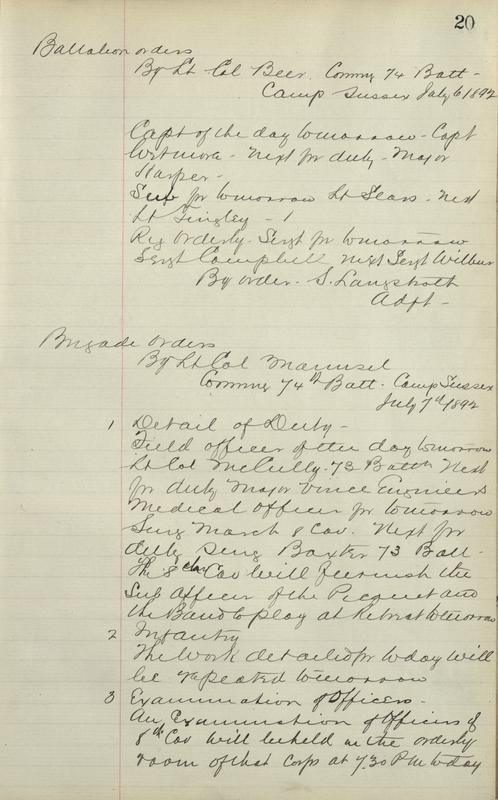 20
Battalion orders
By Lt Col Beer. Commg 74 Batt -
Camp Sussex July 6/1892
Capt of the day tomorrow - Capt
Wetmore - Next for duty - Major
Harper -
Sub for tomorrow Lt Sears - Next
Lt Tingley - 1
Reg Orderly Sergt for tomorrow
Sergt Campbell next Sergt Wilbur
By order - S. Langstroth
Adjt -
Brigade orders
By Lt Col Maunsel
Commg 74th Batt - Camp Sussex
July 7th/1892
1 Detail of Duty -
Field officer of the day tomorrow
Lt Col McCully - 73 Battn Next
for duty Major Vince Engineers
Medical officer for tomorrow
Surg March 8 Cav. Next for
duty Surg Baxter 73 Batt -
The 8th Cav will furnish the
Sub Officer of the Picquet and
the Band to play at Retreat tomorrow
2 Infantry
The Work detailed for today will
be repeated tomorrow
3 Examination of Officers -
An Examination of Officers of
8th Cav will be held in the orderly
room of that Corps at 7.30 P M today